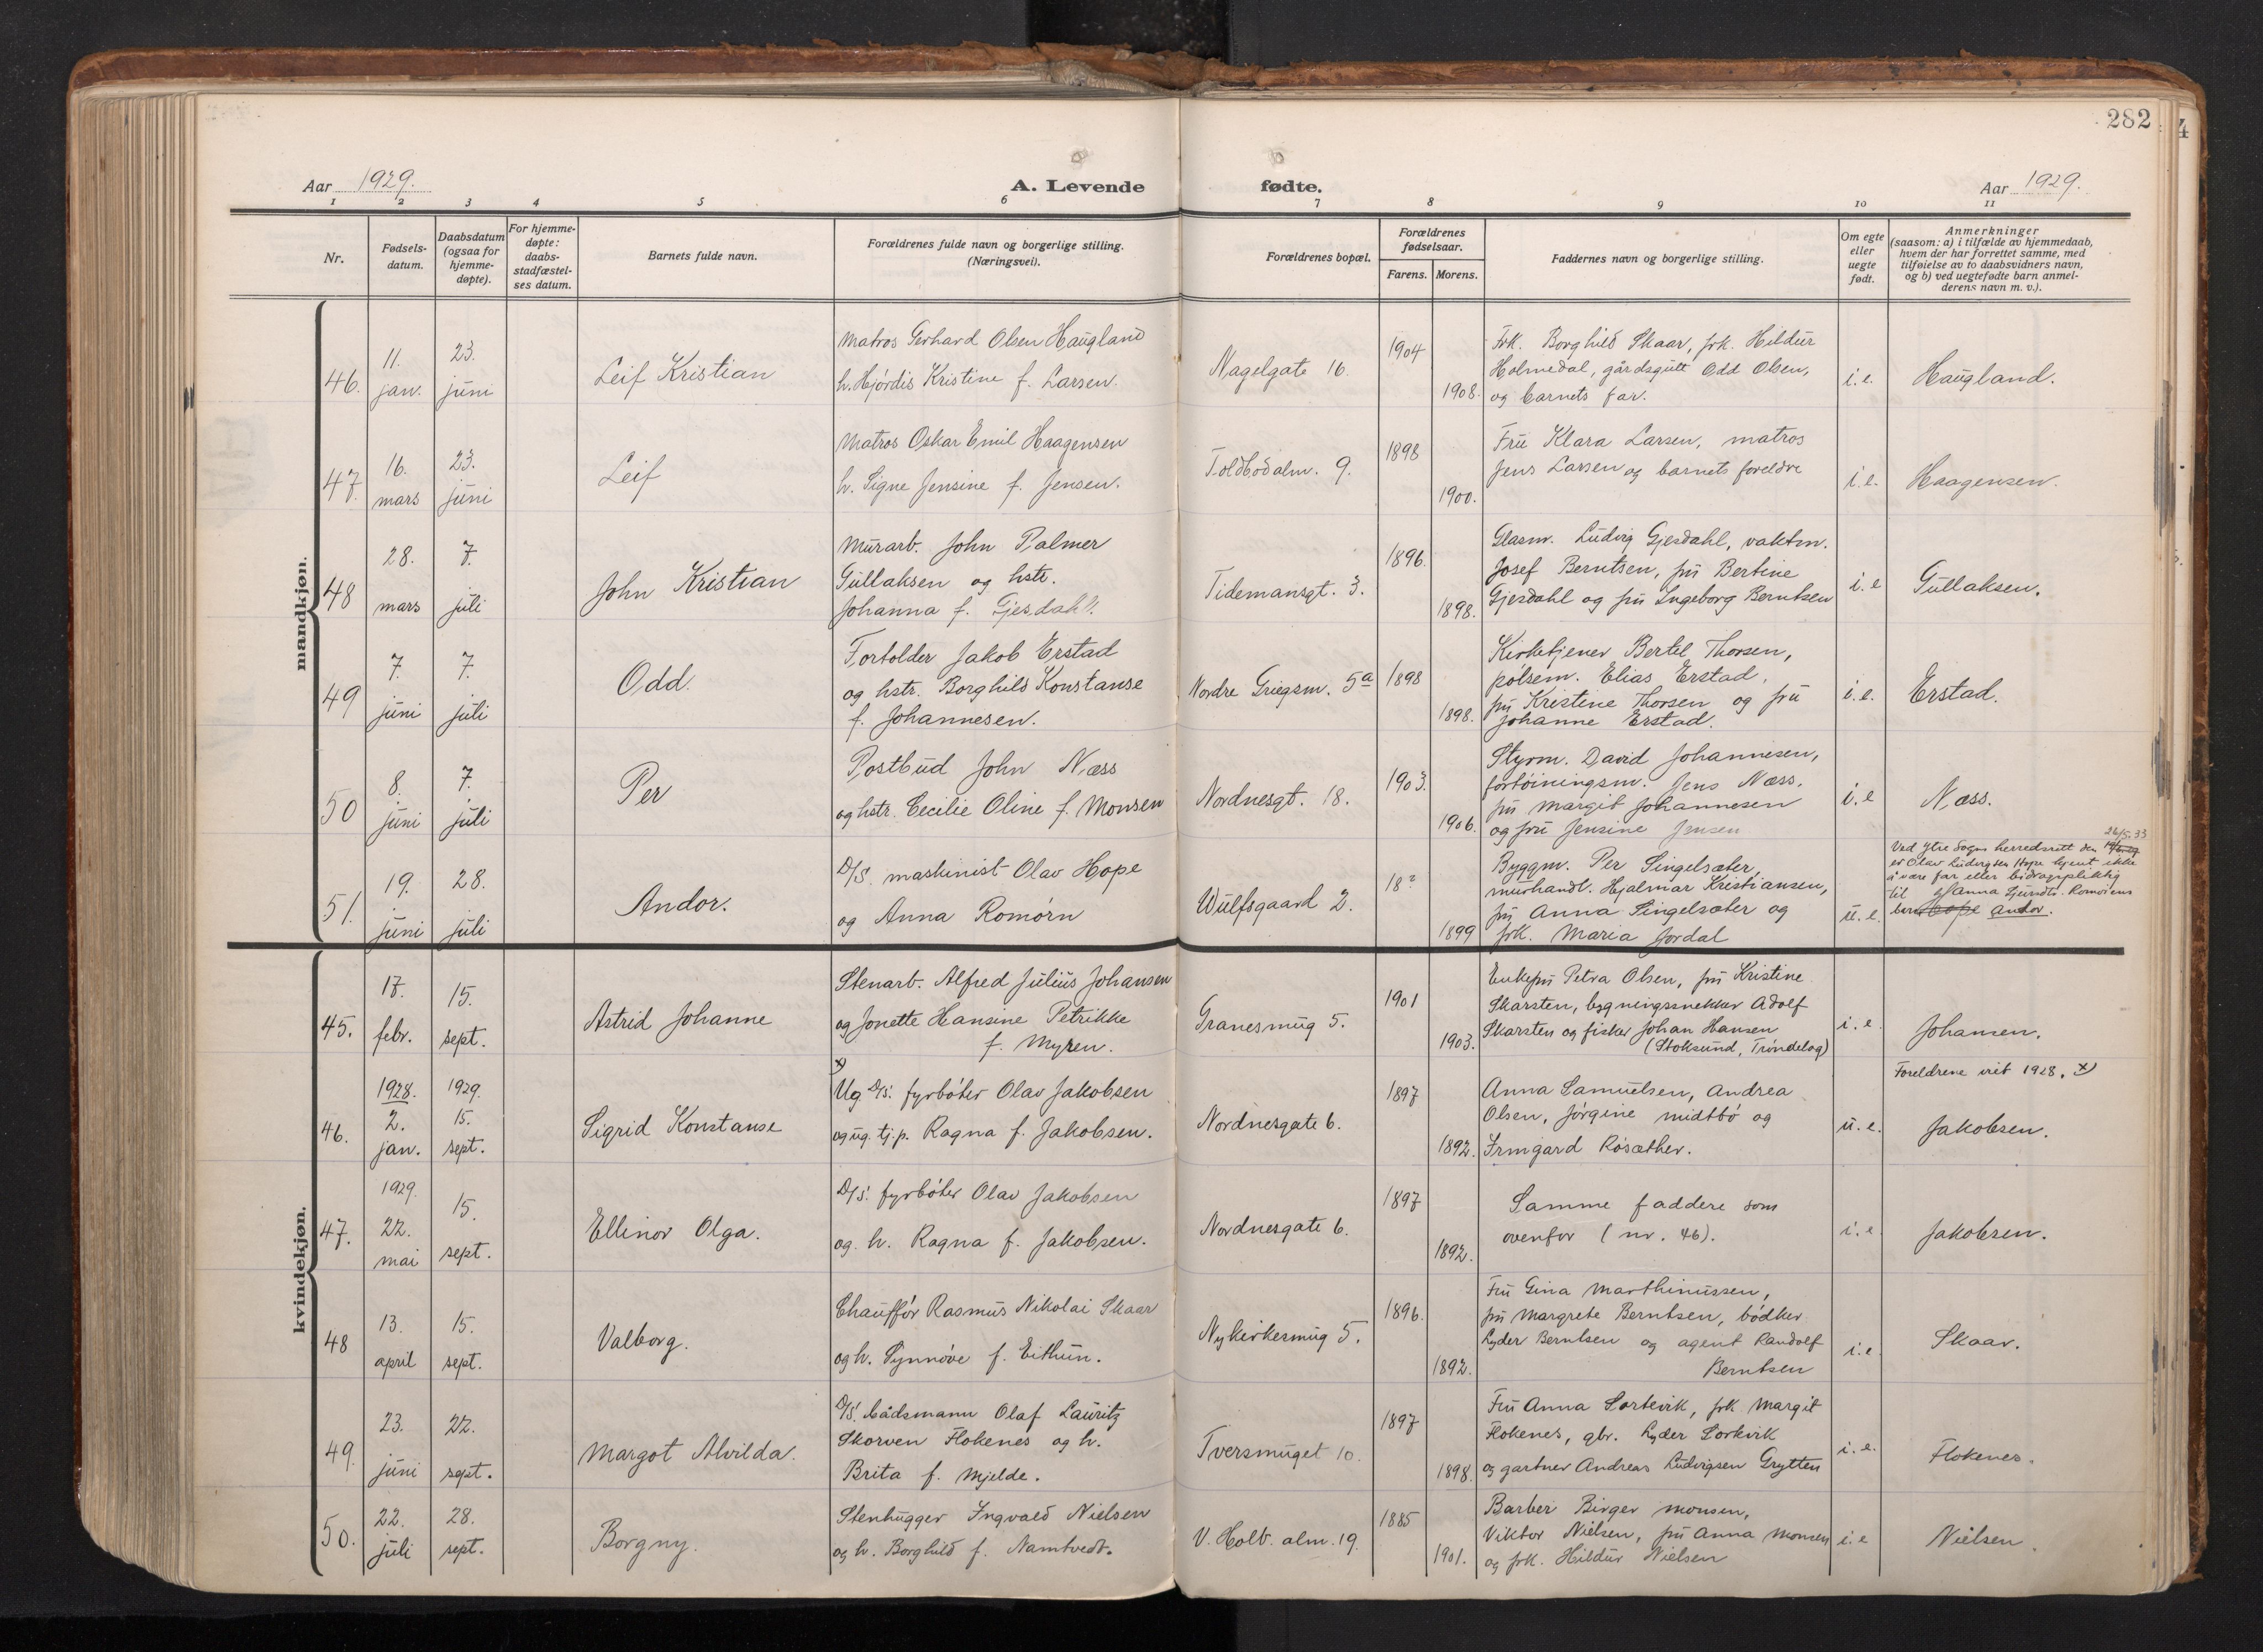 282
4
Aar 1929.
A. Levende
fødte.
Aar 1929.
1 2 3 4 5 6 7 8 9 10 11
Nr.
Fødsels-
datum.
Daabsdatum
(ogsaa for
hjemme-
døpte).
For hjemme-
døpte:
daabs-
stadfæstel-
ses datum.
Barnets fulde navn.
Forældrenes fulde navn og borgerlige stilling.
(Næringsvei).
Forældrenes bopæl.
Forældrenes
fødselsaar.
Farens. Morens.
Faddernes navn og borgerlige stilling.
Om egte
eller
uegte
født.
Anmerkninger
(saasom: a) i tilfælde av hjemmedaab,
hvem der har forrettet samme, med
tilføielse av to daabsvidners navn,
og b) ved uegtefødte barn anmel-
derens navn m. v.).
mandkjøn.
46.
11.
jan.
23.
juni
Leif Kristian
Matros Gerhard Olsen Haugland
h. Hjørdis Kristine f. Larsen.
Nagelgate 16.
1904
1908.
Frk. Borghild Skaar, frk. Hildur
Holmedal, gårdsgutt Odd Olsen,
og barnets far.
i.e.
Haugland.
47.
16.
mars
23.
juni
Leif
Matros Oskar Emil Haagensen
h. Signe Jensine f. Jensen.
Toldbodalm. 9.
1898
1900.
Fru Klara Larsen, matros
Jens Larsen og barnets foreldre
i.e.
Haagensen.
48
28.
mars
7.
juli
John Kristian
Murarb. John Palmer
Gullaksen og hstr.
Johanna f. Gjesdahl.
Tidemansgt. 3.
1896.
1898.
Glasm. Ludvig Gjesdahl, vaktm.
Josef Berntsen, fru Bertine
Gjesdahl og fru Ingeborg Berntsen
i.e
Gullaksen.
49
7.
juni
7.
juli
Odd.
Fortolder Jakob Erstad
og hstr. Borghild Konstanse
f. Johannesen.
Nordre Griegsm. 5a
1898
1898.
Kirketjener Bertel Thorsen,
pølsem. Elias Erstad,
fru Kristine Thorsen og fru
Johanne Erstad.
i.e.
Erstad.
50
8.
juni
7.
juli
Per
Postbud John Næss
og hstr. Cecilie Oline f. Monsen
Nordnesgt. 18.
1903.
1906.
Styrm. David Johannesen,
fortøiningsm. Jens Næss.
fru Margit Johannesen
og fru Jensine Jensen
i.e
Næss.
51.
19.
juni
28.
juli
Andor.
D/S. maskinist Olav Hope
og Anna Romørn
Wulfsgaard 2.
18?
1899
Byggm. Per Singelsæter,
murhandl. Hjalmar Kristiansen,
fru Anna Singelsæter og
frk. Maria Jordal
u.e.
24/5.33
Ved Ytre Sogns herredsrett den
er Olav Ludvigsen Hope kjent ikke
å være far eller bidragspliktig
til Anna Romørens
barn Hope Andor.
kvindekjøn.
45.
17.
febr.
15.
sept.
Astrid Johanne
Stenarb. Alfred Julius Johansen
og Jonette Hansine Petrikke
f. Myren.
Granesmug 5.
1901
1903.
Enkefru Petra Olsen, fru Kristine
Skarsten, bygningssnekker Adolf
Skarsten og fisker Johan Hansen
(Stoksund, Trøndelag)
i.e.
Johansen.
46.
1928.
2.
jan.
1929.
15.
sept.
Sigrid Konstanse
x)
Ug. D/S. fyrbøter Olav Jakobsen
og ug. tj.p. Ragna f. Jakobsen.
Nordnesgate 6.
1897
1892.
Anna Samuelsen, Andrea
Olsen, Jørgine Midtbø og
Irmgard Røsæther.
u.e.
Foreldrene viet 1928. x)
Jakobsen.
47.
1929.
22.
mai
15.
sept.
Ellinor Olga.
D/S. fyrbøter Olav Jakobsen
og. h. Ragna f. Jakobsen.
Nordnesgate 6.
1897
1892.
Samme faddere som
ovenfor (nr. 46).
i.e
Jakobsen.
48
13.
april
15.
sept.
Valborg.
Chauffør Rasmus Nikolai Skaar
og h. Synnøve f. Eithun.
Nykirkesmug 5.
1896.
1892.
Fru Gina Marthinussen,
fru Margrete Berntsen, bødker
Lyder Berntsen og agent Randolf
Berntsen
i.e
Skaar.
49.
23.
juni
22.
sept.
Margot Alvilda.
D/S. bådsmann Olaf Lauritz
Skorven Flokenes og h.
Brita f. Mjelde.
Tversmuget 10.
1897
1898.
Fru Anna Sortevik, frk Margit
Flokenes, gbr. Lyder Sorkvik
og gartner Andreas Ludvigsen Grytten
i.e.
Flokenes.
50.
22.
juli
28.
sept.
Borgny.
Stenhugger Ingvald Nielsen
og h. Borghild f. Namtvedt.
V. Holb. alm. 19.
1885
1901.
Barber Birger Monsen,
Viktor Nielsen, fru Anna Monsen
og frk. Hildur Nielsen
i.e
Nielsen.